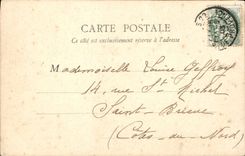 CARTE POSTALE
Ce côté est exclusivement réservé à l'adresse
Mademoiselle Louise Geffroy
14, rue St Michel
Saint-Brieuc
(Côtes-du-Nord)